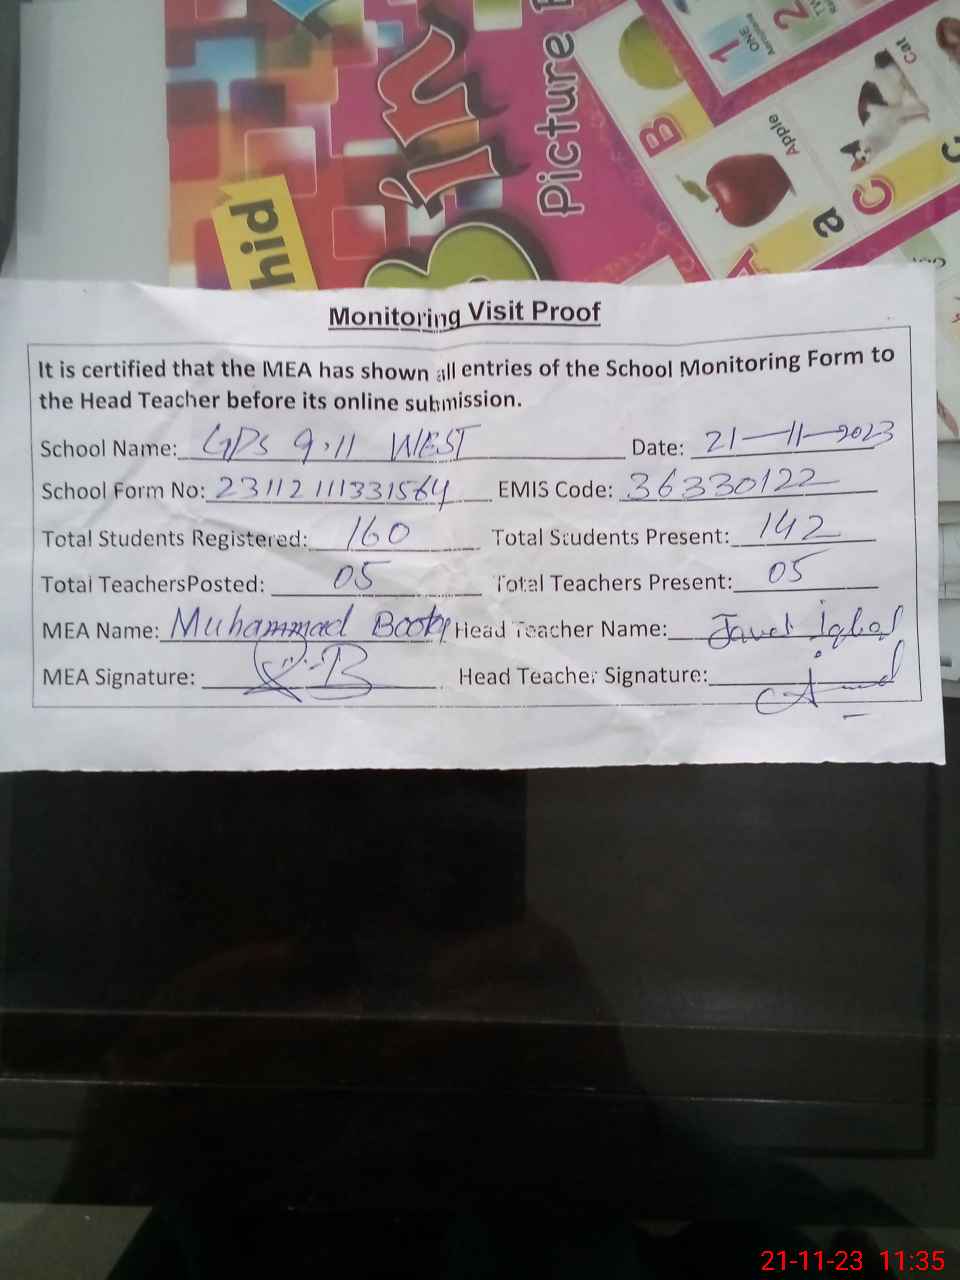 hid
in
Picture
B
Apple
a
C
Cat
1
ONE
2
Monitoring Visit Proof
It is certified that the MEA has shown all entries of the School Monitoring Form to
the Head Teacher before its online submission.
School Name: GPS 9.11 WEST Date: 21-11-2023
School Form No: 23112111331564 EMIS Code: 36330122
Total Students Registered: 160 Total Students Present: 142
Total TeachersPosted: 05 Total Teachers Present: 05
MEA Name: Muhammad Boota Head Teacher Name: Javed Iqbal
MEA Signature: Head Teacher Signature:
21-11-23 11:35